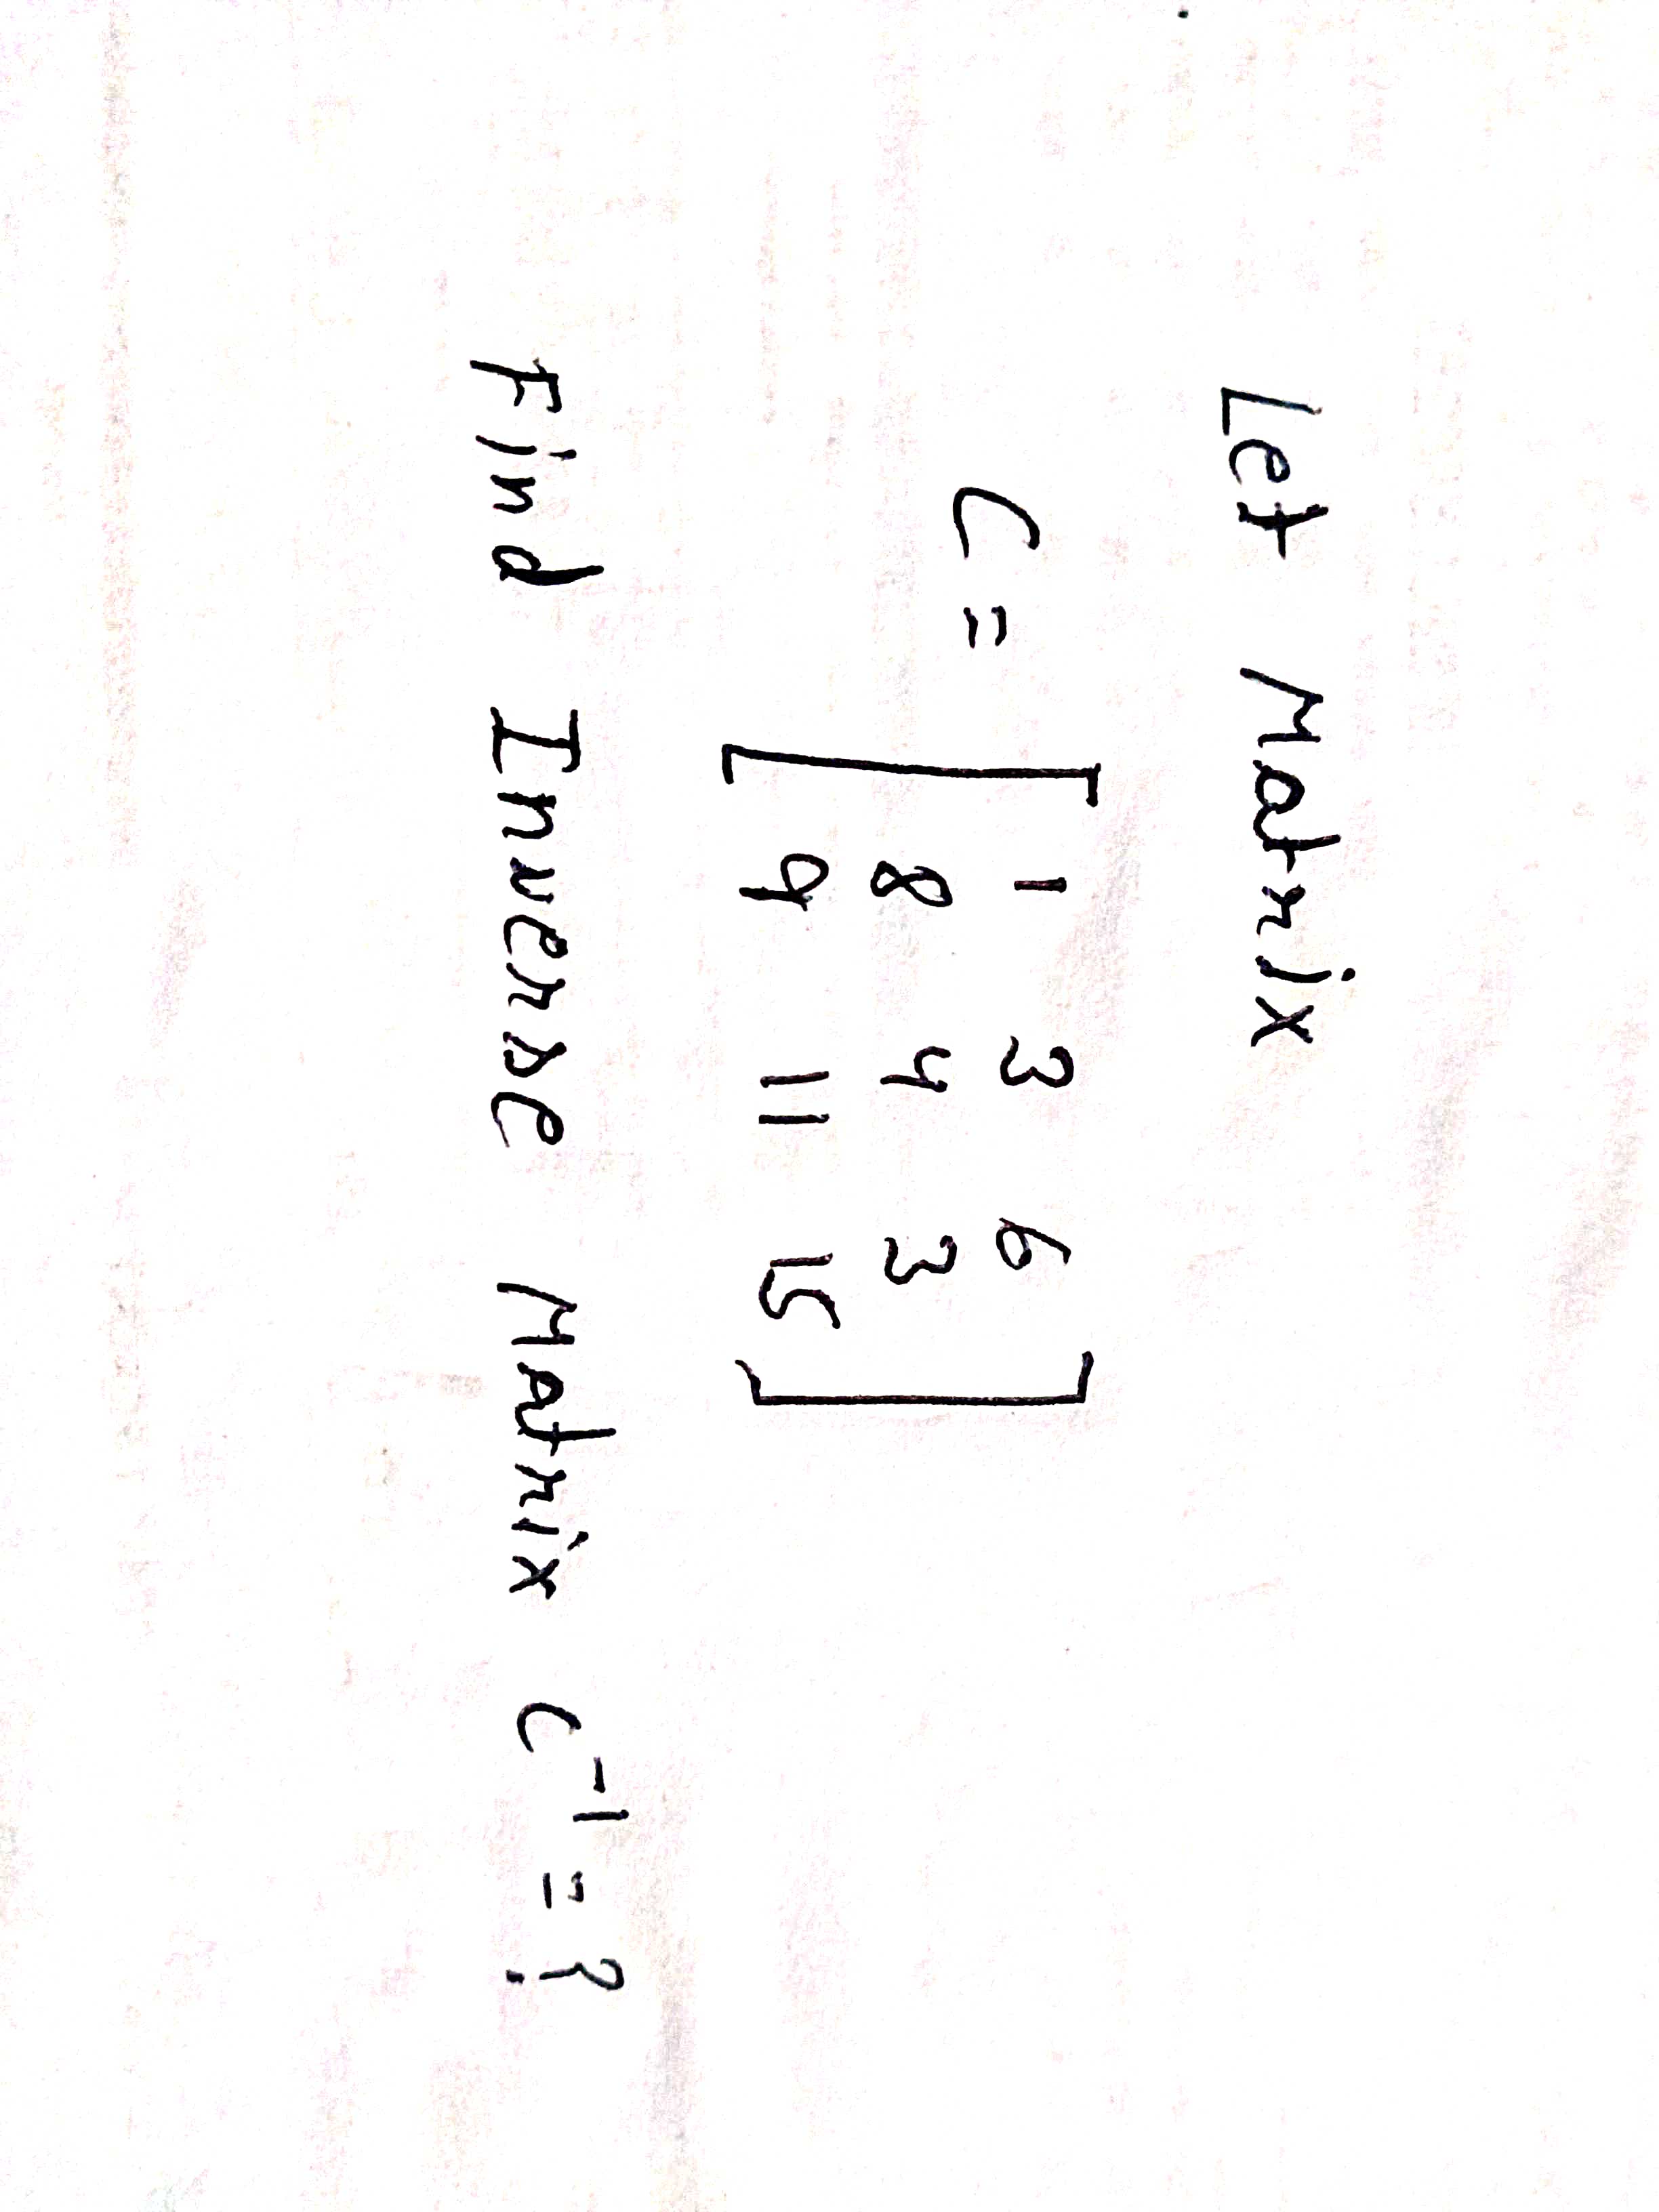 Let Matrix
C = [ 1 3 6
8 4 3
9 11 15 ]
Find Inverse Matrix C⁻¹ = ?